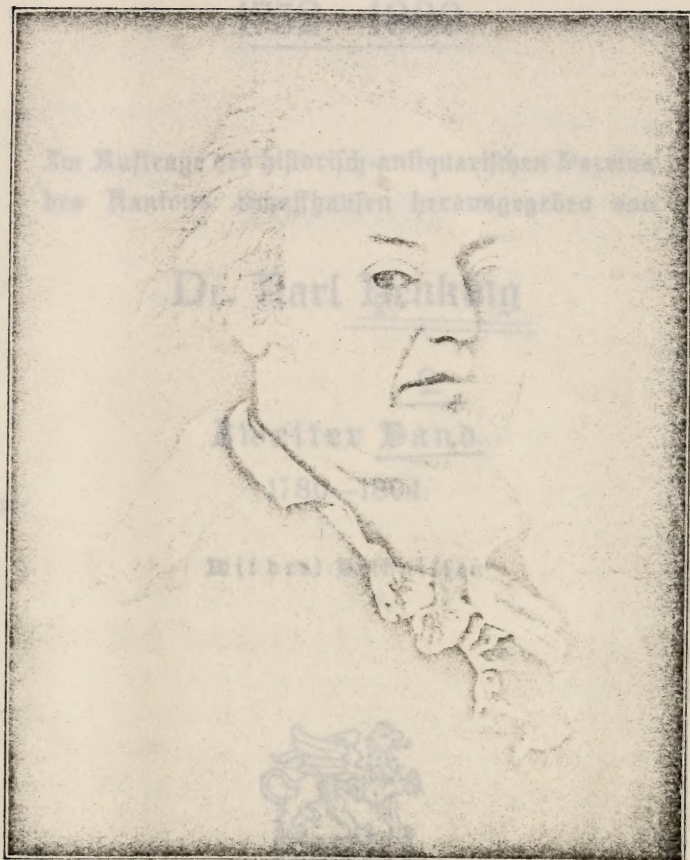 1752–1809
Im Auftrage des historisch-antiquarischen Vereins
des Kantons Schaffhausen herausgegeben von
Dr. Karl Henking
Zweiter Band
1780–1804.
Mit drei